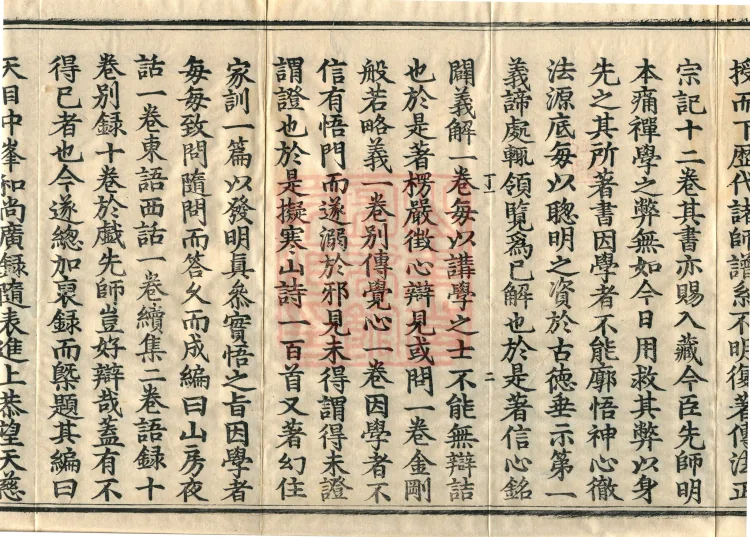 授而下歷代諸師譜系不明復著傳法正
宗記十二卷其書亦賜入藏今臣先師明
本痛禪學之弊無如今日用救其弊以身
先之其所著書因學者不能廓悟神心徹
法源底每以聰明之資於古德垂示第一
義諦處輒領覽爲己解也於是著信心銘
闢義解一卷每以講學之士不能無辯詰
也於是著楞嚴徵心辯見或問一卷金剛
般若略義一卷別傳覺心一卷因學者不
信有悟門而遂溺於邪見未得謂得未證
謂證也於是擬寒山詩一百首又著幻住
家訓一篇以發明眞叅實悟之旨因學者
每每致問隨問而答久而成編曰山房夜
話一卷東語西話一卷續集二卷語録十
卷別録十卷於戲先師豈好辯哉蓋有不
得已者也今遂總加裒録而槩題其編曰
天目中峯和尚廣録隨表進上恭望天慈